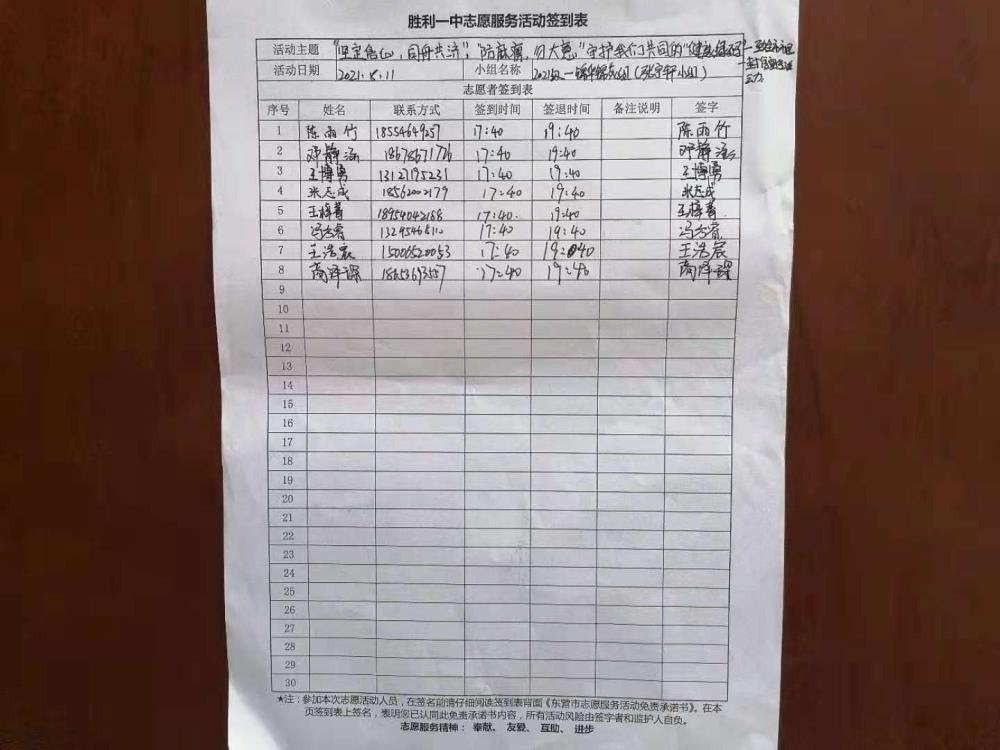 胜利一中志愿服务活动签到表
活动主题 "坚定信心,同舟共济","防麻痹,勿大意。"守护我们共同的"健康绿码"
活动日期 2021.8.11 小组名称 2021级一锦华锦苑组(张宇轩小组)
志愿者签到表
序号 姓名 联系方式 签到时间 签退时间 备注说明 签字
1 陈雨竹 18554649257 17:40 19:40 陈雨竹
2 邓静涵 18678671726 17:40 19:40 邓静涵
3 王博勇 13127195231 17:40 19:40 王博勇
4 张志成 18562002179 17:40 19:40 张志成
5 王梓菁 18954042188 17:40 19:40 王梓菁
6 冯方睿 17:40 19:40 冯方睿
7 王浩宸 15006520053 17:40 19:40 王浩宸
8 17:40 19:40
9
10
11
12
13
14
15
16
17
18
19
20
21
22
23
24
25
26
27
28
29
30
*注:参加本次志愿活动人员,在签名前请仔细阅读签到表背面《东营市志愿服务活动免责承诺书》。在本
页签到表上签名,表明您已认同此免责承诺书内容,所有活动风险由签字者和监护人自负。
志愿服务精神: 奉献、 友爱、 互助、 进步